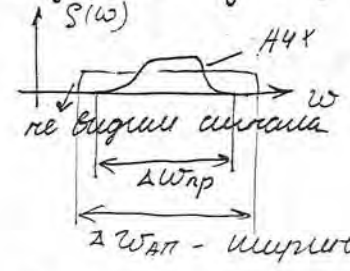 S(ω)
АЧХ
ω
не видим сигнала
Δωпр
Δωап - ширин